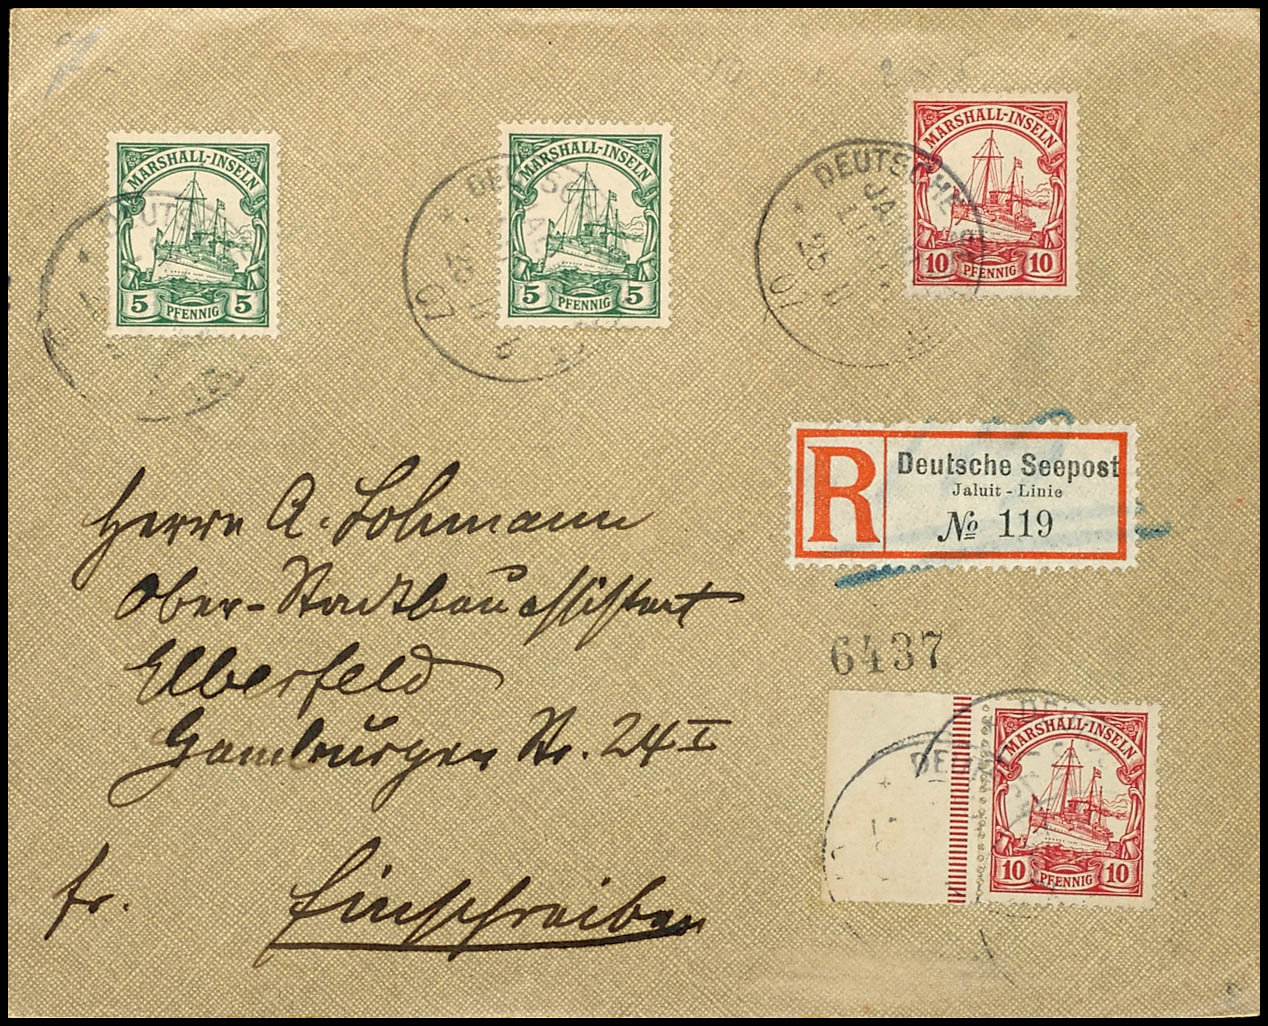 MARSHALL-INSELN
5 PFENNIG 5
MARSHALL-INSELN
5 PFENNIG 5
DEUTSCHE
07
b
MARSHALL-INSELN
10 PFENNIG 10
DEUTSCHE
JA
26
07
R
Deutsche Seepost
Jaluit - Linie
No 119
Herrn A. Lohmann
Ober-Stadtbauassistent
Elberfeld
Hamburger Str. 24 I
6437
MARSHALL-INSELN
10 PFENNIG 10
fr.
Einschreiben